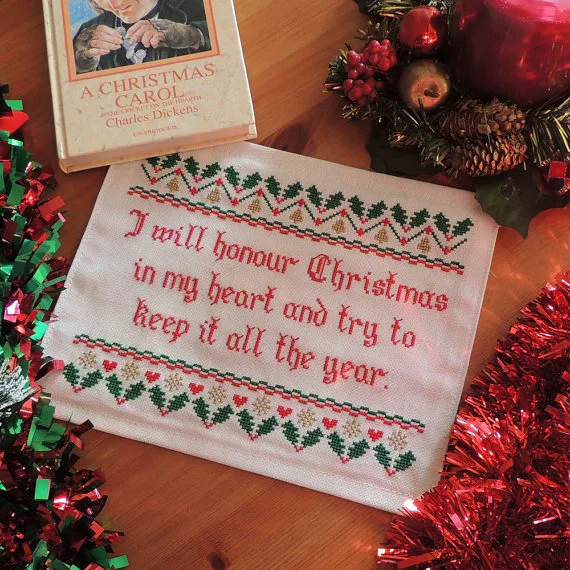 A CHRISTMAS
CAROL
& THE CRICKET ON THE HEARTH
Charles Dickens
UNABRIDGED
I will honour Christmas
in my heart and try to
keep it all the year.